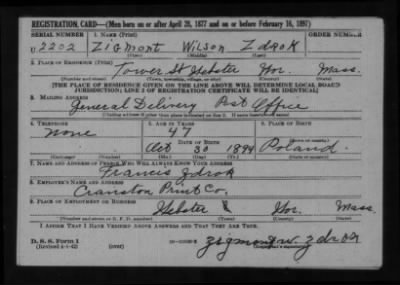 REGISTRATION CARD—(Men born on or after April 28, 1877 and on or before February 16, 1897)
SERIAL NUMBER 1. NAME (Print) ORDER NUMBER
U 2202 Zigmont Wilson Zdrok
2. PLACE OF RESIDENCE (Print)
Tower St Webster Wor. Mass.
(Number and street) (Town, township, village, or city) (County) (State)
[THE PLACE OF RESIDENCE GIVEN ON THE LINE ABOVE WILL DETERMINE LOCAL BOARD
JURISDICTION; LINE 2 OF REGISTRATION CERTIFICATE WILL BE IDENTICAL]
3. MAILING ADDRESS
General Delivery Post Office
4. TELEPHONE 5. AGE IN YEARS 6. PLACE OF BIRTH
none 47
DATE OF BIRTH (Town or county)
Oct 30 1894 Poland.
(Exchange) (Number) (Mo.) (Day) (Yr.) (State or country)
7. NAME AND ADDRESS OF PERSON WHO WILL ALWAYS KNOW YOUR ADDRESS
Francis Zdrok
8. EMPLOYER'S NAME AND ADDRESS
Cranston Print Co.
9. PLACE OF EMPLOYMENT OR BUSINESS
Webster Wor. Mass.
(Number and street or R. F. D. number) (Town) (County) (State)
I AFFIRM THAT I HAVE VERIFIED ABOVE ANSWERS AND THAT THEY ARE TRUE.
D. S. S. Form 1
(Revised 4-1-42) (over) Zigmont W. Zdrok